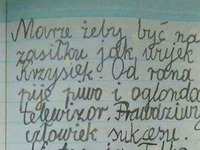 Marze żeby być na
zasiłku jak wujek
Krzysiek. Od rana
pije piwo i oglonda
telewizor. Prawdziwy
człowiek sukcesu.